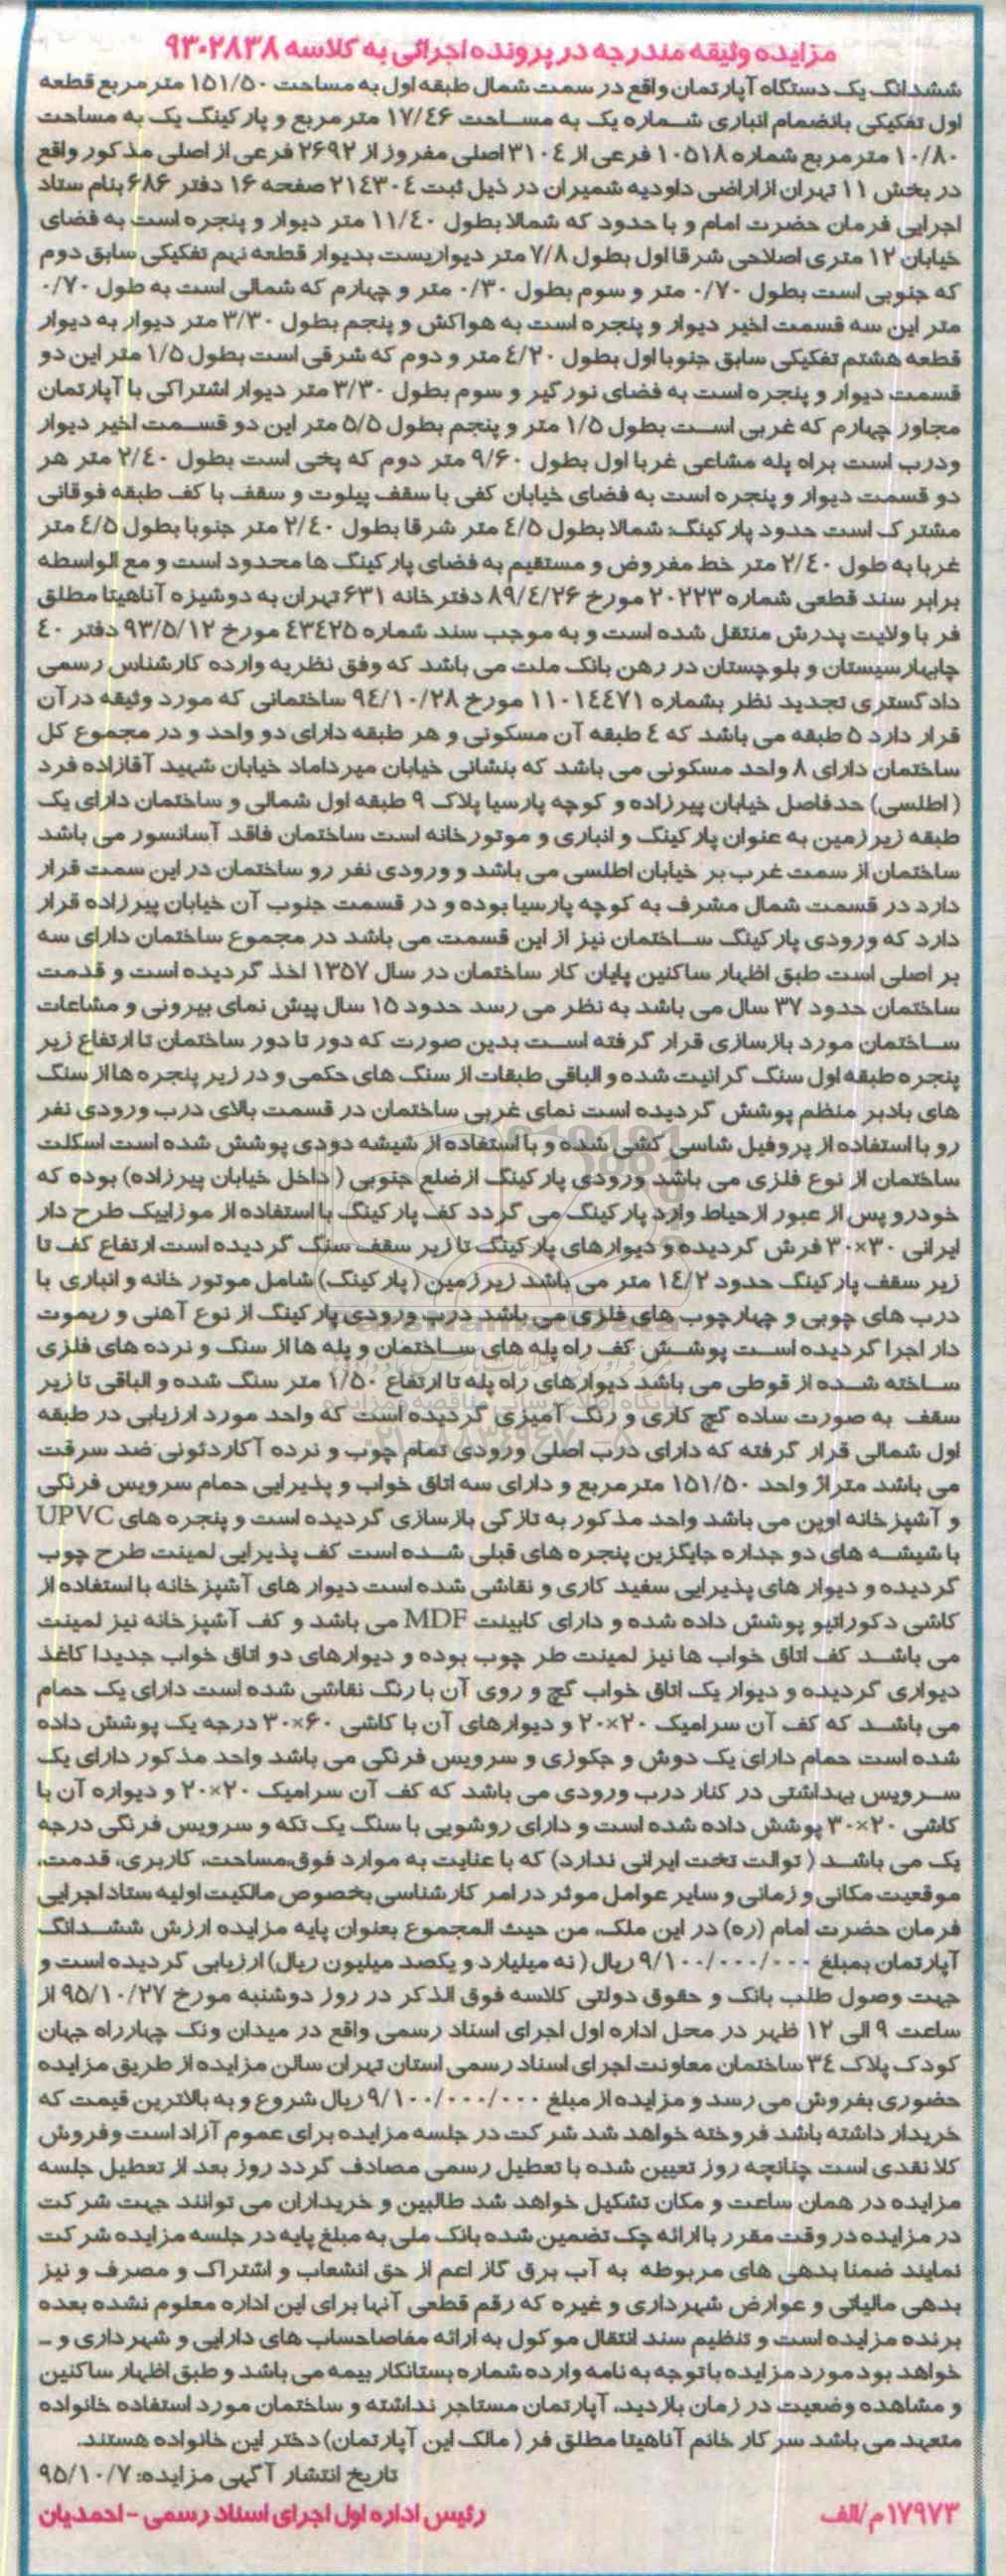 مزایده وثیقه مندرجه در پرونده اجرائی به کلاسه ۹۳۰۲۸۳۸
ششدانگ یک دستگاه آپارتمان واقع در سمت شمال طبقه اول به مساحت ۱۵۱/۵۰ متر مربع قطعه
اول تفکیکی بانضمام انباری شماره یک به مساحت ۱۷/٤۶ مترمربع و پارکینگ یک به مساحت
۱۰/۸۰ مترمربع شماره ۱۰۵۱۸ فرعی از ۳۱۰٤ اصلی مفروز از ۲۶۹۲ فرعی از اصلی مذکور واقع
در بخش ۱۱ تهران ازاراضی داودیه شمیران در ذیل ثبت ۲۱٤۳۰٤ صفحه ۱۶ دفتر ۶۸۶ بنام ستاد
اجرایی فرمان حضرت امام و با حدود که شمالا بطول ۱۱/٤۰ متر دیوار و پنجره است به فضای
خیابان ۱۲ متری اصلاحی شرقا اول بطول ۷/۸ متر دیواریست بدیوار قطعه نهم تفکیکی سابق دوم
که جنوبی است بطول ۰/۷۰ متر و سوم بطول ۰/۳۰ متر و چهارم که شمالی است به طول ۰/۷۰
متر این سه قسمت اخیر دیوار و پنجره است به هواکش و پنجم بطول ۳/۳۰ متر دیوار به دیوار
قطعه هشتم تفکیکی سابق جنوبا اول بطول ٤/۲۰ متر و دوم که شرقی است بطول ۱/۵ متر این دو
قسمت دیوار و پنجره است به فضای نورگیر و سوم بطول ۳/۳۰ متر دیوار اشتراکی با آپارتمان
مجاور چهارم که غربی است بطول ۱/۵ متر و پنجم بطول ۵/۵ متر این دو قسمت اخیر دیوار
ودرب است براه پله مشاعی غربا اول بطول ۹/۶۰ متر دوم که پخی است بطول ۲/٤۰ متر هر
دو قسمت دیوار و پنجره است به فضای خیابان کفی با سقف پیلوت و سقف با کف طبقه فوقانی
مشترک است حدود پارکینگ: شمالا بطول ٤/۵ متر شرقا بطول ۲/٤۰ متر جنوبا بطول ٤/۵ متر
غربا به طول ۲/٤۰ متر خط مفروض و مستقیم به فضای پارکینگ ها محدود است و مع الواسطه
برابر سند قطعی شماره ۲۰۲۲۳ مورخ ۸۹/٤/۲۶ دفترخانه ۶۳۱ تهران به دوشیزه آناهیتا مطلق
فر با ولایت پدرش منتقل شده است و به موجب سند شماره ٤۳٤۲۵ مورخ ۹۳/۵/۱۲ دفتر ٤۰
چابهار سیستان و بلوچستان در رهن بانک ملت می باشد که وفق نظریه وارده کارشناس رسمی
دادگستری تجدید نظر بشماره ۱۱۰۱٤٤۷۱ مورخ ۹٤/۱۰/۲۸ ساختمانی که مورد وثیقه درآن
قرار دارد ۵ طبقه می باشد که ٤ طبقه آن مسکونی و هر طبقه دارای دو واحد و در مجموع کل
ساختمان دارای ۸ واحد مسکونی می باشد که بنشانی خیابان میرداماد خیابان شهید آقازاده فرد
( اطلسی) حدفاصل خیابان پیرزاده و کوچه پارسیا پلاک ۹ طبقه اول شمالی و ساختمان دارای یک
طبقه زیرزمین به عنوان پارکینگ و انباری و موتورخانه است ساختمان فاقد آسانسور می باشد
ساختمان از سمت غرب بر خیابان اطلسی می باشد و ورودی نفر رو ساختمان در این سمت قرار
دارد در قسمت شمال مشرف به کوچه پارسیا بوده و در قسمت جنوب آن خیابان پیرزاده قرار
دارد که ورودی پارکینگ ساختمان نیز از این قسمت می باشد در مجموع ساختمان دارای سه
بر اصلی است طبق اظهار ساکنین پایان کار ساختمان در سال ۱۳۵۷ اخذ گردیده است و قدمت
ساختمان حدود ۳۷ سال می باشد به نظر می رسد حدود ۱۵ سال پیش نمای بیرونی و مشاعات
ساختمان مورد بازسازی قرار گرفته است بدین صورت که دور تا دور ساختمان تا ارتفاع زیر
پنجره طبقه اول سنگ گرانیت شده و الباقی طبقات از سنگ های حکمی و در زیر پنجره ها از سنگ
های بادبر منظم پوشش گردیده است نمای غربی ساختمان در قسمت بالای درب ورودی نفر
رو با استفاده از پروفیل شاسی کشی شده و با استفاده از شیشه دودی پوشش شده است اسکلت
ساختمان از نوع فلزی می باشد ورودی پارکینگ ازضلع جنوبی ( داخل خیابان پیرزاده) بوده که
خودرو پس از عبور ازحیاط وارد پارکینگ می گردد کف پارکینگ با استفاده از موزاییک طرح دار
ایرانی ۳۰×۳۰ فرش گردیده و دیوارهای پارکینگ تا زیر سقف سنگ گردیده است ارتفاع کف تا
زیر سقف پارکینگ حدود ۱٤/۲ متر می باشد زیرزمین ( پارکینگ) شامل موتور خانه و انباری با
درب های چوبی و چهارچوب های فلزی می باشد درب ورودی پارکینگ از نوع آهنی و ریموت
دار اجرا گردیده است پوشش کف راه پله های ساختمان و پله ها از سنگ و نرده های فلزی
ساخته شده از قوطی می باشد دیوارهای راه پله تا ارتفاع ۱/۵۰ متر سنگ شده و الباقی تا زیر
سقف به صورت ساده گچ کاری و رنگ آمیزی گردیده است که واحد مورد ارزیابی در طبقه
اول شمالی قرار گرفته که دارای درب اصلی ورودی تمام چوب و نرده آکاردئونی ضد سرقت
می باشد متراژ واحد ۱۵۱/۵۰ مترمربع و دارای سه اتاق خواب و پذیرایی حمام سرویس فرنگی
و آشپزخانه اوپن می باشد واحد مذکور به تازگی بازسازی گردیده است و پنجره های UPVC
با شیشه های دو جداره جایگزین پنجره های قبلی شده است کف پذیرایی لمینت طرح چوب
گردیده و دیوار های پذیرایی سفید کاری و نقاشی شده است دیوار های آشپزخانه با استفاده از
کاشی دکوراتیو پوشش داده شده و دارای کابینت MDF می باشد و کف آشپزخانه نیز لمینت
می باشد کف اتاق خواب ها نیز لمینت طر چوب بوده و دیوارهای دو اتاق خواب جدیدا کاغذ
دیواری گردیده و دیوار یک اتاق خواب گچ و روی آن با رنگ نقاشی شده است دارای یک حمام
می باشد که کف آن سرامیک ۲۰×۲۰ و دیوارهای آن با کاشی ۶۰×۳۰ درجه یک پوشش داده
شده است حمام دارای یک دوش و جکوزی و سرویس فرنگی می باشد واحد مذکور دارای یک
سرویس بهداشتی در کنار درب ورودی می باشد که کف آن سرامیک ۲۰×۲۰ و دیواره آن با
کاشی ۲۰×۳۰ پوشش داده شده است و دارای روشویی با سنگ یک تکه و سرویس فرنگی درجه
یک می باشد ( توالت تخت ایرانی ندارد) که با عنایت به موارد فوق،مساحت، کاربری، قدمت،
موقعیت مکانی و زمانی و سایر عوامل موثر در امر کارشناسی بخصوص مالکیت اولیه ستاد اجرایی
فرمان حضرت امام (ره) در این ملک، من حیث المجموع بعنوان پایه مزایده ارزش ششدانگ
آپارتمان بمبلغ ۹/۱۰۰/۰۰۰/۰۰۰ ریال ( نه میلیارد و یکصد میلیون ریال) ارزیابی گردیده است و
جهت وصول طلب بانک و حقوق دولتی کلاسه فوق الذکر در روز دوشنبه مورخ ۹۵/۱۰/۲۷ از
ساعت ۹ الی ۱۲ ظهر در محل اداره اول اجرای اسناد رسمی واقع در میدان ونک چهارراه جهان
کودک پلاک ۳٤ ساختمان معاونت اجرای اسناد رسمی استان تهران سالن مزایده از طریق مزایده
حضوری بفروش می رسد و مزایده از مبلغ ۹/۱۰۰/۰۰۰/۰۰۰ ریال شروع و به بالاترین قیمت که
خریدار داشته باشد فروخته خواهد شد شرکت در جلسه مزایده برای عموم آزاد است وفروش
کلا نقدی است چنانچه روز تعیین شده با تعطیل رسمی مصادف گردد روز بعد از تعطیل جلسه
مزایده در همان ساعت و مکان تشکیل خواهد شد طالبین و خریداران می توانند جهت شرکت
در مزایده در وقت مقرر با ارائه چک تضمین شده بانک ملی به مبلغ پایه در جلسه مزایده شرکت
نمایند ضمنا بدهی های مربوطه به آب برق گاز اعم از حق انشعاب و اشتراک و مصرف و نیز
بدهی مالیاتی و عوارض شهرداری و غیره که رقم قطعی آنها برای این اداره معلوم نشده بعده
برنده مزایده است و تنظیم سند انتقال موکول به ارائه مفاصاحساب های دارایی و شهرداری و -
خواهد بود مورد مزایده باتوجه به نامه وارده شماره بستانکار بیمه می باشد و طبق اظهار ساکنین
و مشاهده وضعیت در زمان بازدید، آپارتمان مستاجر نداشته و ساختمان مورد استفاده خانواده
متعهد می باشد سرکار خانم آناهیتا مطلق فر ( مالک این آپارتمان) دختر این خانواده هستند.
تاریخ انتشار آگهی مزایده: ۹۵/۱۰/۷
۱۷۹۷۳م/الف رئیس اداره اول اجرای اسناد رسمی - احمدیان